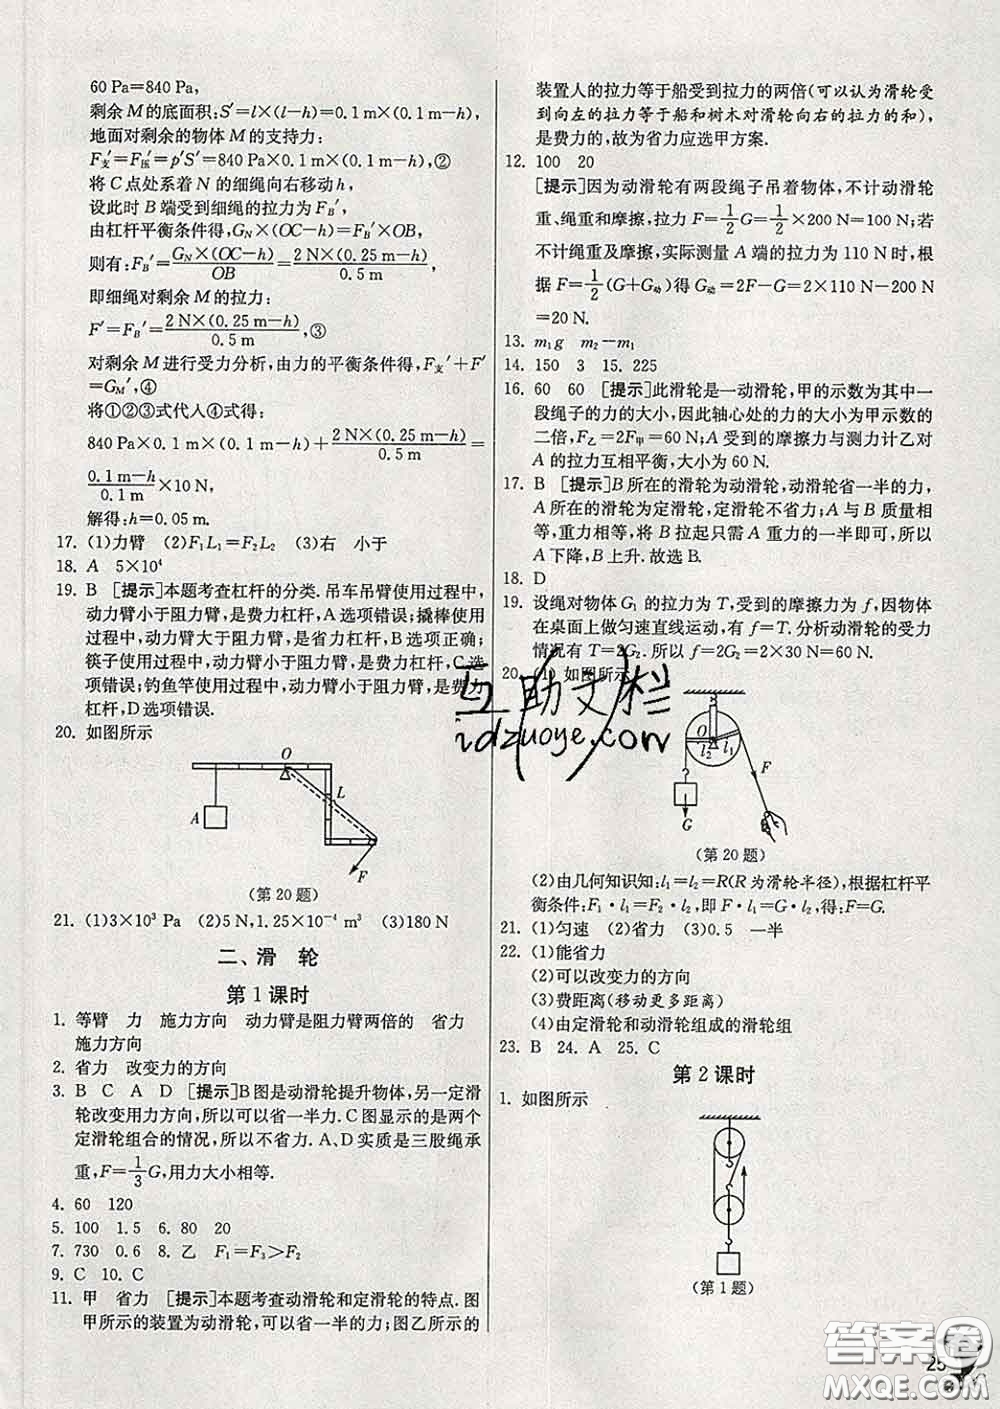 60 Pa=840 Pa,
剩余 M 的底面积:S′=l×(l−h)=0.1 m×(0.1 m−h),
地面对剩余的物体 M 的支持力:
F支′=F压′=p′S′=840 Pa×0.1 m×(0.1 m−h),②
将 C 点处系着 N 的细绳向右移动 h,
设此时 B 端受到细绳的拉力为 FB′,
由杠杆平衡条件得,GN×(OC−h)=FB′×OB,
则有:FB′=GN×(OC−h)/OB=2 N×(0.25 m−h)/0.5 m,
即细绳对剩余 M 的拉力:
F′=FB′=2 N×(0.25 m−h)/0.5 m,③
对剩余 M 进行受力分析,由力的平衡条件得,F支′+F′
=GM′,④
将①②③式代人④式得:
840 Pa×0.1 m×(0.1 m−h)+2 N×(0.25 m−h)/0.5 m=
0.1 m−h/0.1 m×10 N,
解得:h=0.05 m.
17. (1)力臂 (2)F1L1=F2L2 (3)右 小于
18. A 5×10⁴
19. B [提示]本题考查杠杆的分类.吊车吊臂使用过程中,
动力臂小于阻力臂,是费力杠杆,A选项错误;撬棒使用
过程中,动力臂大于阻力臂,是省力杠杆,B选项正确;
筷子使用过程中,动力臂小于阻力臂,是费力杠杆,C选
项错误;钓鱼竿使用过程中,动力臂小于阻力臂,是费力
杠杆,D选项错误.
20. 如图所示
O
L
A
F
(第20题)
21. (1)3×10³ Pa (2)5 N,1.25×10⁻⁴ m³ (3)180 N
二、滑 轮
第1课时
1. 等臂 力 施力方向 动力臂是阻力臂两倍的 省力
施力方向
2. 省力 改变力的方向
3. B C A D [提示]B图是动滑轮提升物体,另一定滑
轮改变用力方向,所以可以省一半力.C图显示的是两个
定滑轮组合的情况,所以不省力.A、D实质是三股绳承
重,F=1/3G,用力大小相等.
4. 60 120
5. 100 1.5 6. 80 20
7. 730 0.6 8. 乙 F1=F3>F2
9. C 10. C
11. 甲 省力 [提示]本题考查动滑轮和定滑轮的特点.图
甲所示的装置为动滑轮,可以省一半的力;图乙所示的
装置人的拉力等于船受到拉力的两倍(可以认为滑轮受
到向左的拉力等于船和树木对滑轮向右的拉力的和),
是费力的,故为省力应选甲方案.
12. 100 20
[提示]因为动滑轮有两段绳子吊着物体,不计动滑轮
重、绳重和摩擦,拉力 F=1/2G=1/2×200 N=100 N;若
不计绳重及摩擦,实际测量 A 端的拉力为 110 N 时,根
据 F=1/2(G+G动)得 G动=2F−G=2×110 N−200 N
=20 N.
13. m1g m2−m1
14. 150 3 15. 225
16. 60 60 [提示]此滑轮是一动滑轮,甲的示数为其中一
段绳子的力的大小,因此轴心处的力的大小为甲示数的
二倍,F乙=2F甲=60 N;A 受到的摩擦力与测力计乙对
A 的拉力互相平衡,大小为 60 N.
17. B [提示]B所在的滑轮为动滑轮,动滑轮省一半的力,
A 所在的滑轮为定滑轮,定滑轮不省力;A 与 B 质量相
等,重力相等,将 B 拉起只需 A 重力的一半即可,所以
A 下降,B 上升.故选 B.
18. D
19. 设绳对物体 G1 的拉力为 T,受到的摩擦力为 f,因物体
在桌面上做匀速直线运动,有 f=T.分析动滑轮的受力
情况有 T=2G2.所以 f=2G2=2×30 N=60 N.
20. (1)如图所示
互助文栏
idzuoye.com
O
l2
l1
F
G
(第20题)
(2)由几何知识知:l1=l2=R(R 为滑轮半径),根据杠杆平
衡条件:F1·l1=F2·l2,即 F·l1=G·l2,得:F=G.
21. (1)匀速 (2)省力 (3)0.5 一半
22. (1)能省力
(2)可以改变力的方向
(3)费距离(移动更多距离)
(4)由定滑轮和动滑轮组成的滑轮组
23. B 24. A 25. C
第2课时
1. 如图所示
(第1题)
答案卷
MXQE.COM
25